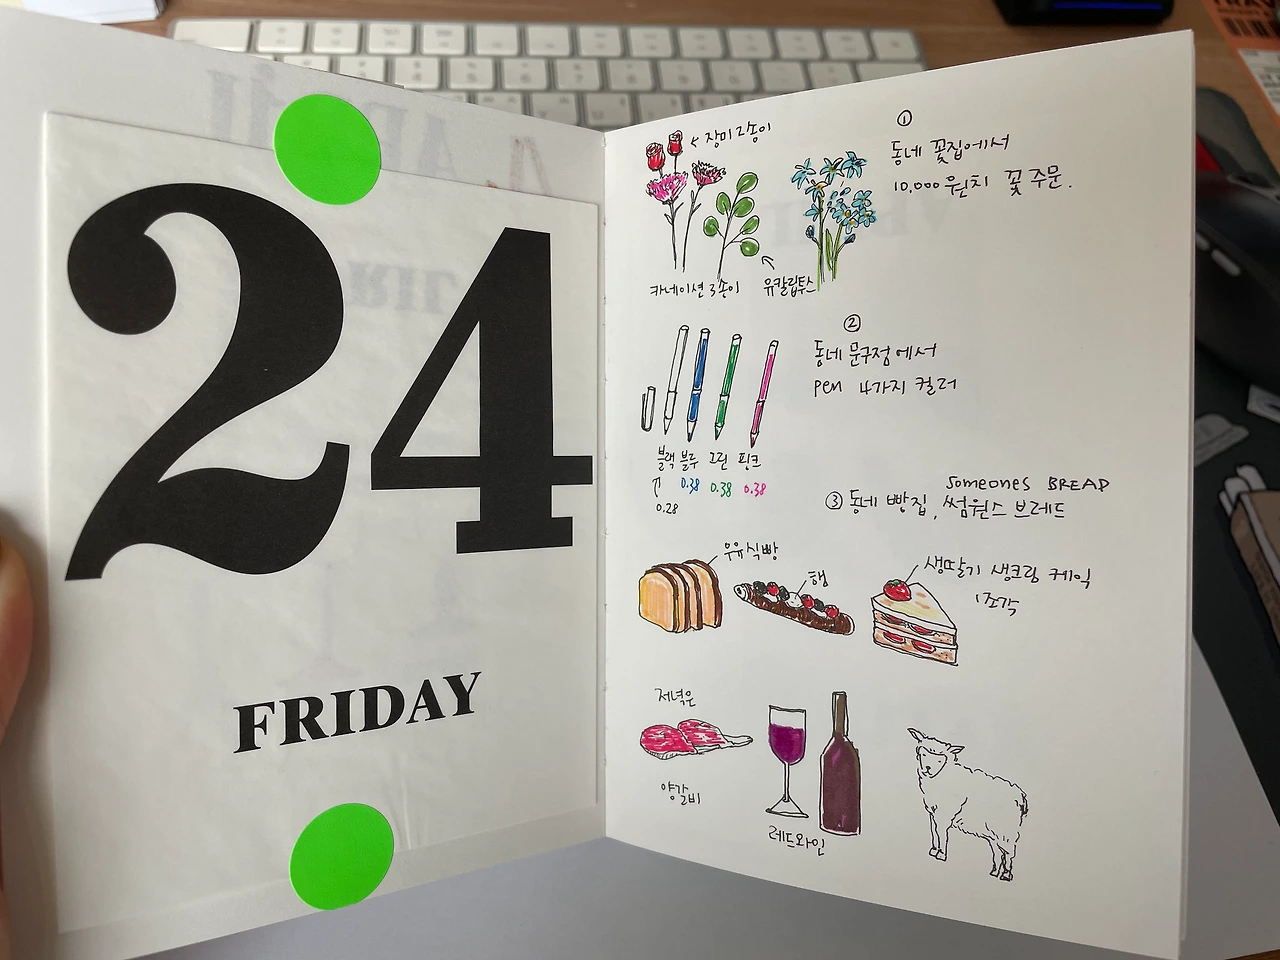 24
FRIDAY
①
동네 꽃집에서
10,000원치 꽃 주문.
장미 2송이
카네이션 3송이
유칼립투스
②
동네 문구점에서
pen 4가지 컬러
블랙 블루 그린 핑크
0.38 0.38 0.38
0.28
someones BREAD
③ 동네 빵집, 썸원스 브레드
우유식빵
햄
생딸기 생크림 케익
1조각
저녁은
양갈비
레드와인